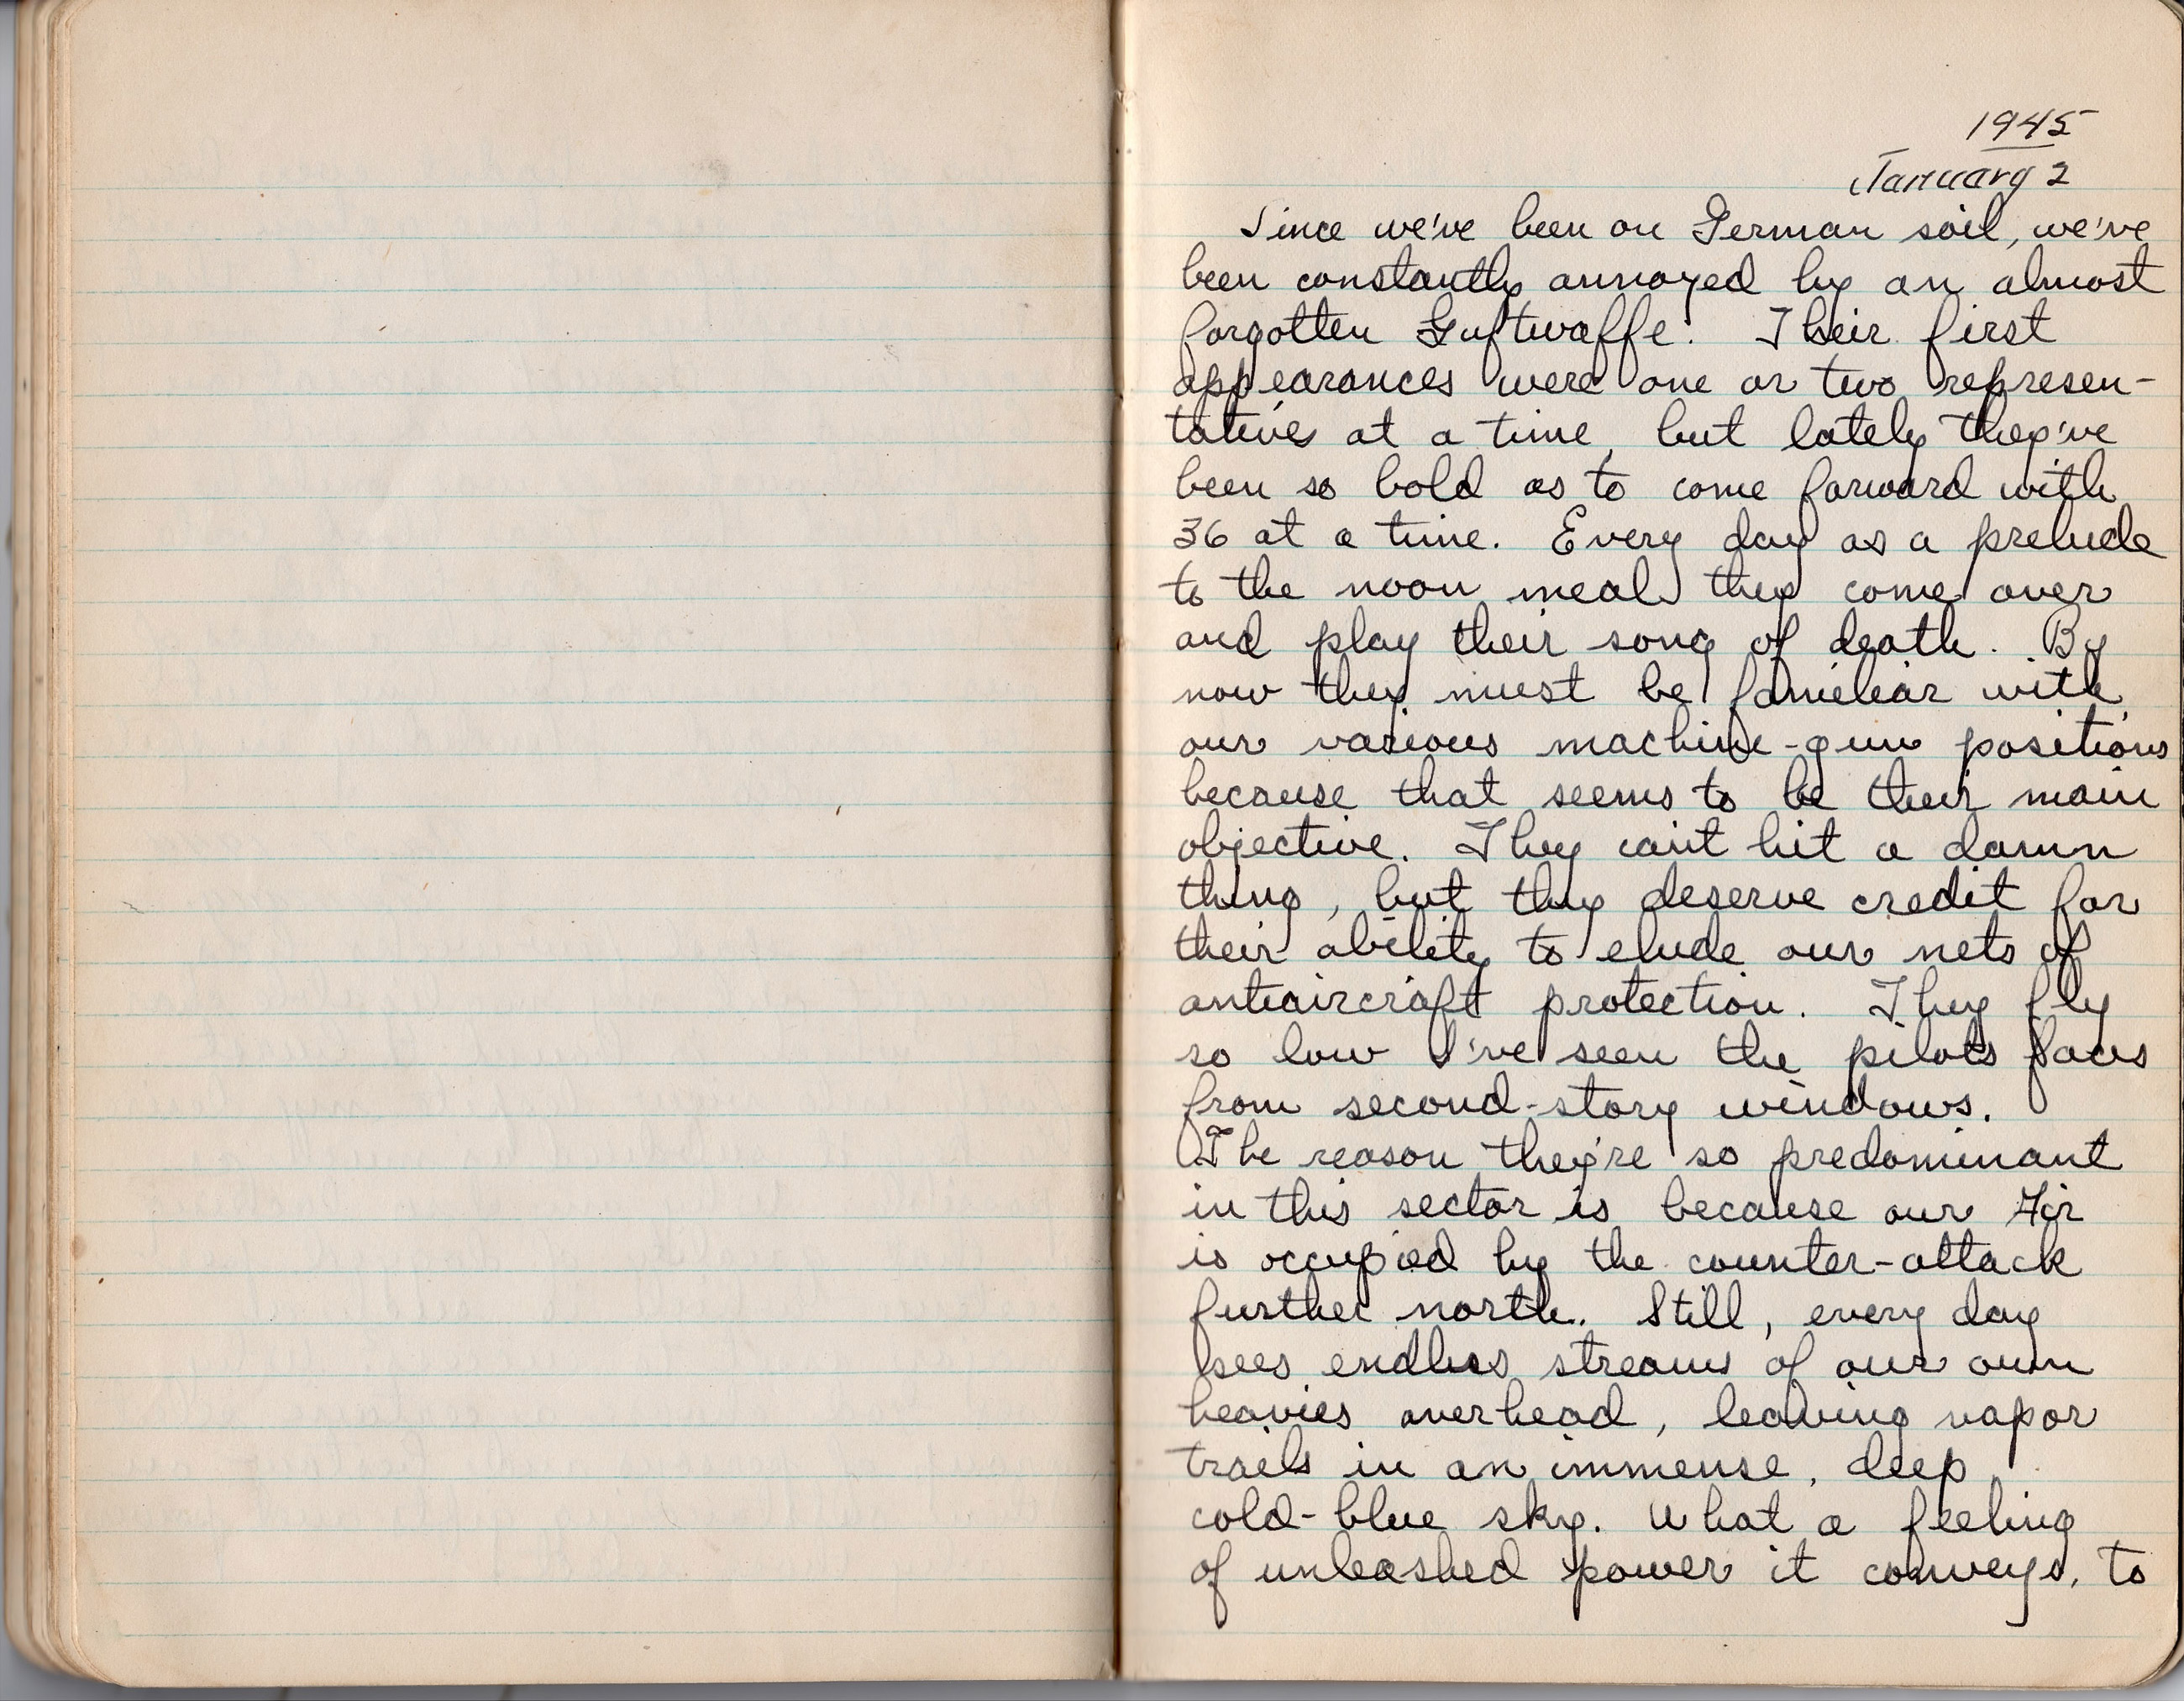 1945
January 2
Since we've been on German soil, we've
been constantly annoyed by an almost
forgotten Luftwaffe. Their first
appearances were one or two represen-
tatives at a time, but lately they've
been so bold as to come forward with
36 at a time. Every day as a prelude
to the noon meal they come over
and play their song of death. By
now they must be familiar with
our various machine-gun positions
because that seems to be their main
objective. They can't hit a damn
thing, but they deserve credit for
their ability to elude our nets of
antiaircraft protection. They fly
so low I've seen the pilots faces
from second-story windows.
The reason they're so predominant
in this sector is because our Air
is occupied by the counter-attack
further north. Still, every day
sees endless streams of our own
heavies overhead, leaving vapor
trails in an immense, deep,
cold-blue sky. What a feeling
of unleashed power it conveys, to